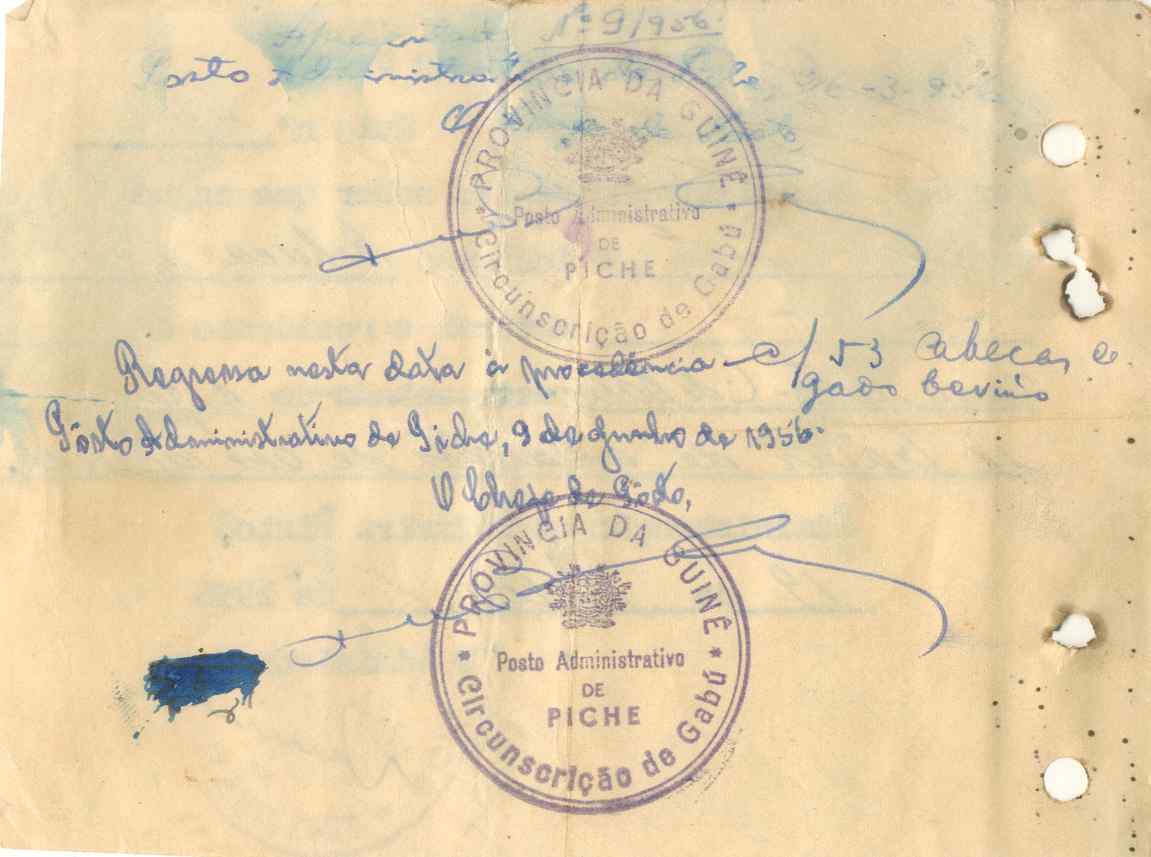 Nº 9/956.
Posto Administrat
PROVINCIA DA GUINÊ
Posto Administrativo
DE
PICHE
Circunscrição de Gabú
Regressa nesta data à procedência c/ 53 Cabeças de
gado bovino
Pôsto Administrativo de Piche, 9 de Junho de 1956.
O Chefe de Pôsto,
PROVINCIA DA GUINÊ
Posto Administrativo
DE
PICHE
Circunscrição de Gabú